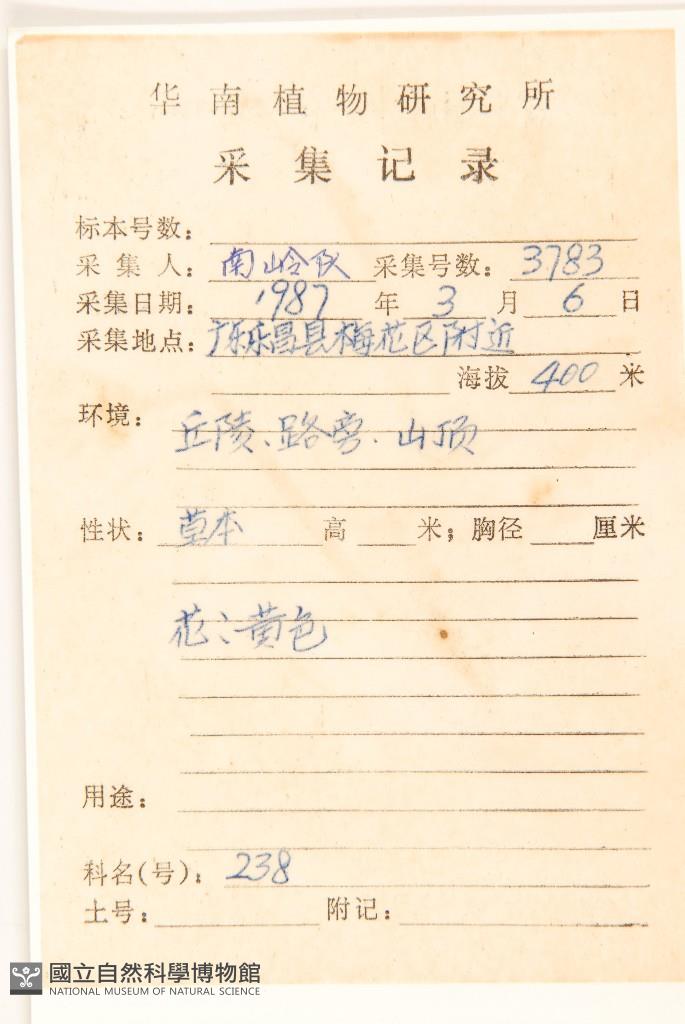 华南植物研究所
采集记录
标本号数：
采集人：南岭队 采集号数：3783
采集日期：1987年3月6日
采集地点：广东乐昌县梅花区附近
海拔400米
环境：丘陵、路旁、山顶
性状：草本 高 米；胸径 厘米
花：黄色
用途：
科名(号)：238
土号： 附记：
國立自然科學博物館
NATIONAL MUSEUM OF NATURAL SCIENCE